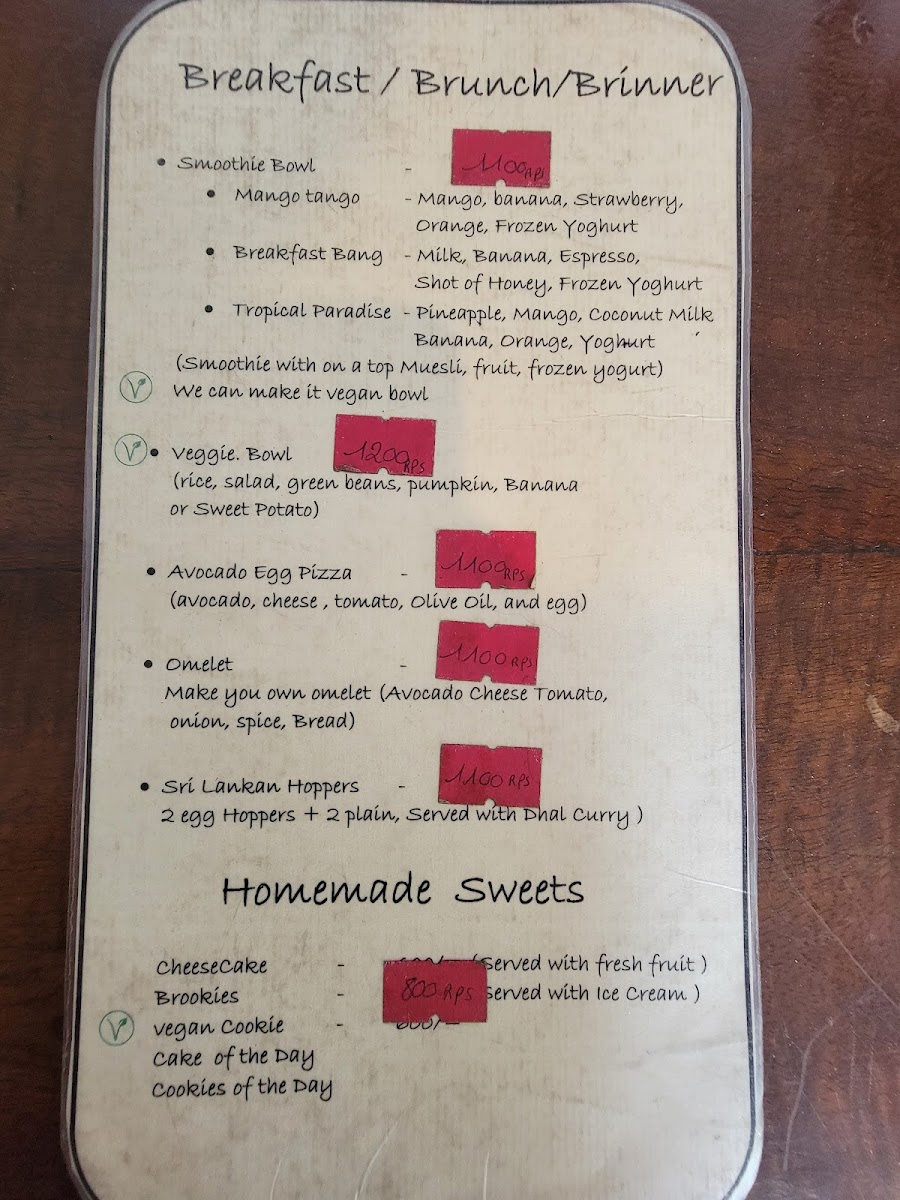 Breakfast / Brunch/Brinner
• Smoothie Bowl - 1100 RPS
• Mango tango - Mango, banana, Strawberry,
Orange, Frozen Yoghurt
• Breakfast Bang - Milk, Banana, Espresso,
Shot of Honey, Frozen Yoghurt
• Tropical Paradise - Pineapple, Mango, Coconut Milk
Banana, Orange, Yoghurt
(Smoothie with on a top Muesli, fruit, frozen yogurt)
V We can make it vegan bowl
V • Veggie. Bowl 1200 RPS
(rice, salad, green beans, pumpkin, Banana
or Sweet Potato)
• Avocado Egg Pizza - 1100 RPS
(avocado, cheese , tomato, Olive Oil, and egg)
• Omelet - 1100 RPS
Make you own omelet (Avocado Cheese Tomato,
onion, spice, Bread)
• Sri Lankan Hoppers - 1100 RPS
2 egg Hoppers + 2 plain, Served with Dhal Curry )
Homemade Sweets
CheeseCake - (Served with fresh fruit )
Brookies - 800 RPS Served with Ice Cream )
V vegan Cookie -
Cake of the Day
Cookies of the Day